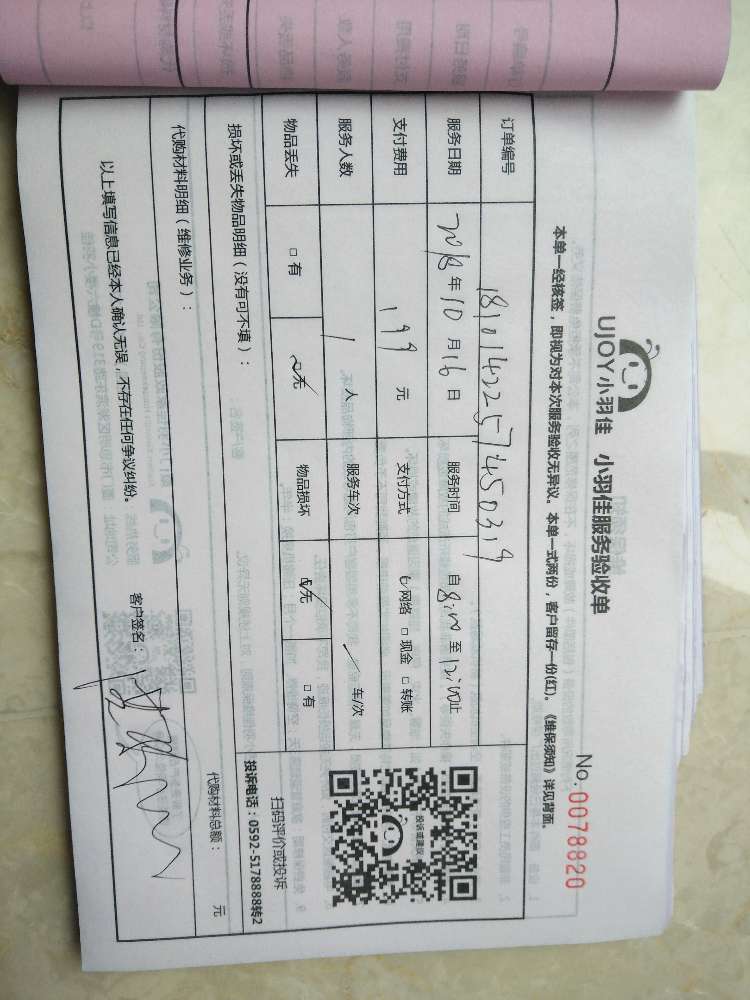 UJOY小羽佳 小羽佳服务验收单
No.0078820
本单一经核签，即视为对本次服务验收无异议。本单一式两份，客户留存一份(红)。《维保须知》详见背面。
订单编号 1810142257450319
服务日期 2018年10月16日 服务时间 自8:00至12:00止
支付费用 199元 支付方式 ☑网络 □现金 □转账
服务人数 1人 服务车次 /车/次
物品丢失 □有 ☑无 物品损坏 ☑无 □有
投诉或建议
扫码评价或投诉
投诉电话：0592-5178888转2
损坏或丢失物品明细（没有可不填）：
代购材料明细（维修业务）：
代购材料总额： 元
以上填写信息已经本人确认无误，不存在任何争议纠纷。 客户签名：